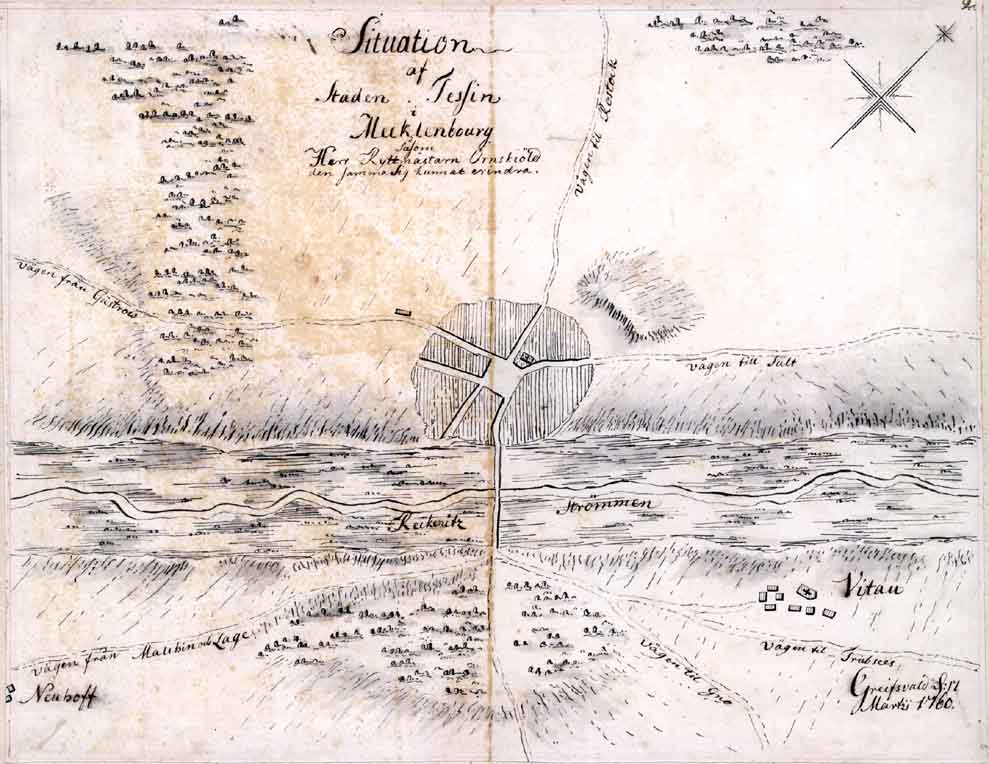 2.
Situation
af
Staden. Tessin
i
Mecklenbourg
såsom
Herr Ryttmästarn Örnskiöld
den samma sig kunnat erindra.
Vägen til Rostock
Vägen från Güstrow
Vägen till Sült
Strömmen
Reckenitz
Vitau
Vägen från Malchin och Lage
Vägen til Gno
Vägen til Tribsees
Neuhoff
Greifsvald d: 17
Martii 1760.